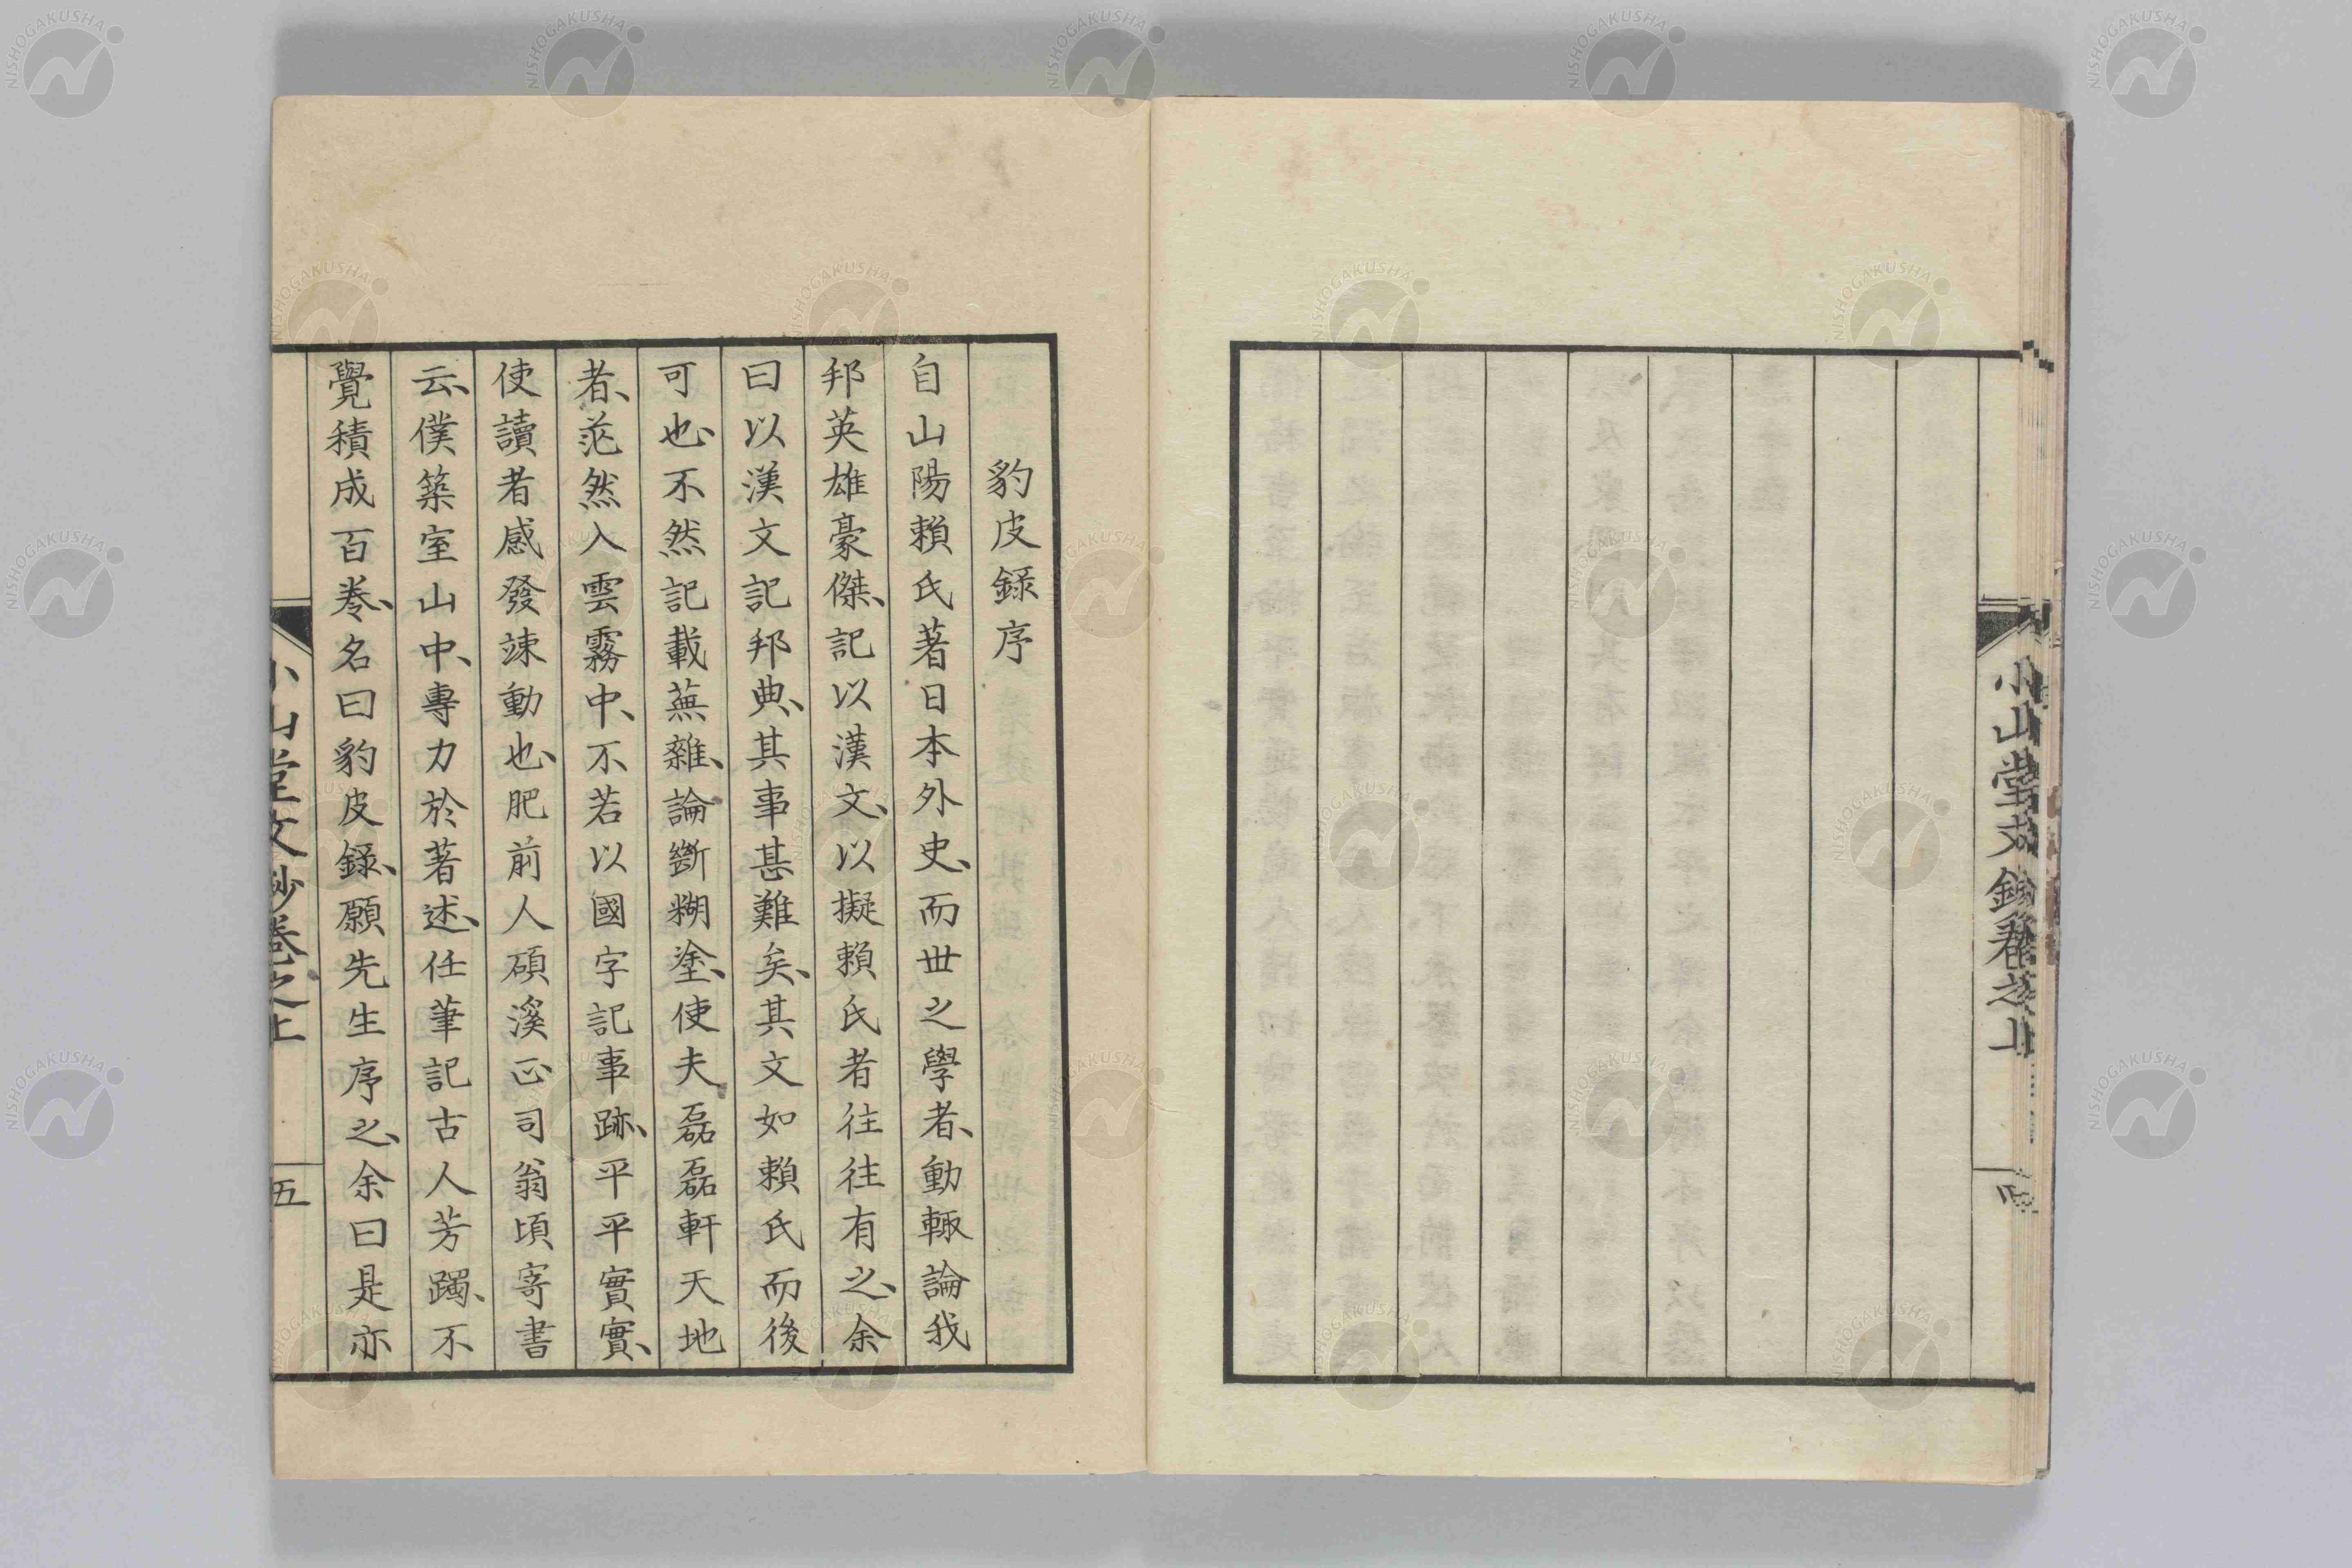 小山堂文鈔卷之上
四
豹皮録序
自山陽賴氏著日本外史、而世之學者、動輙論我
邦英雄豪傑、記以漢文、以擬賴氏者往往有之、余
曰以漢文記邦典、其事甚難矣、其文如賴氏而後
可也、不然記載蕪雜、論斷糊塗、使夫磊磊軒天地
者、茫然入雲霧中、不若以國字記事跡、平平實實、
使讀者感發竦動也、肥前人碩溪正司翁頃寄書
云、僕築室山中、專力於著述、任筆記古人芳躅、不
覺積成百卷、名曰豹皮錄、願先生序之、余曰是亦
小山堂文鈔卷之上
五
NISHOGAKUSHA